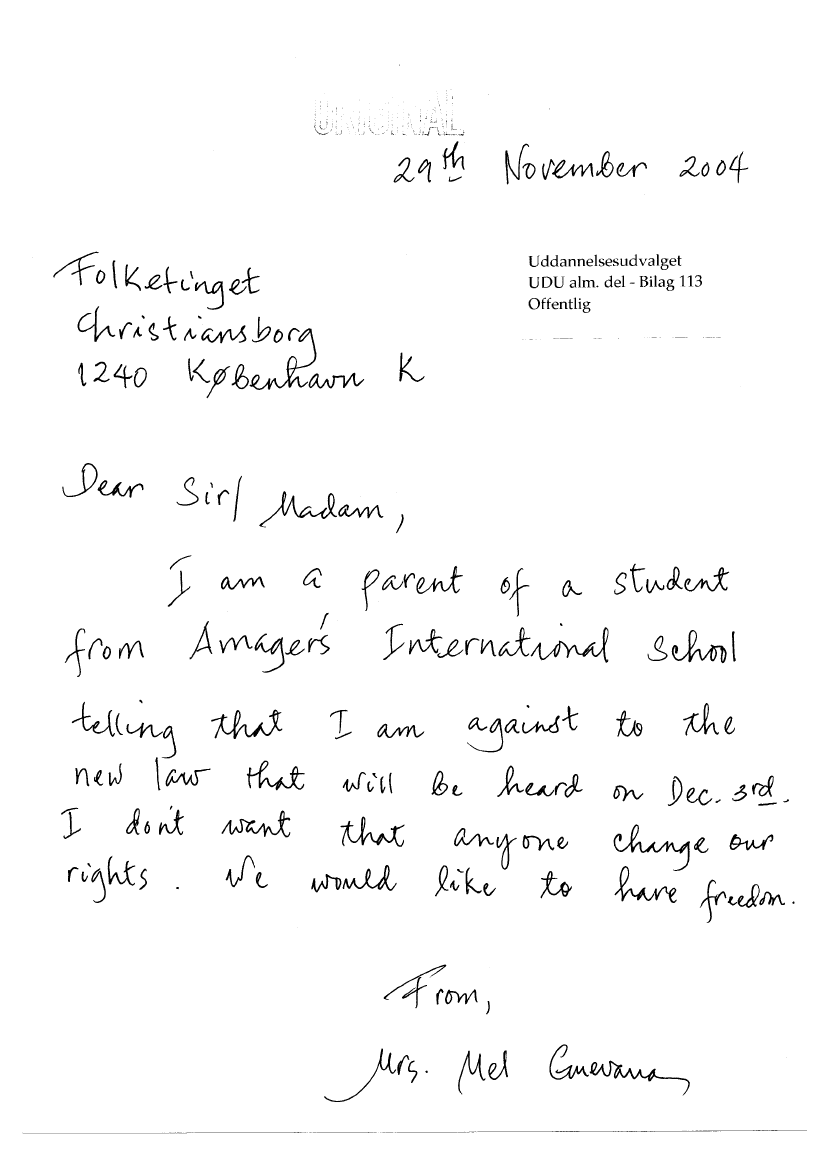 ORIGINAL
29th November 2004
Folketinget
Christiansborg
1240 København K
Uddannelsesudvalget
UDU alm. del - Bilag 113
Offentlig
Dear Sir/ Madam,
I am a parent of a student
from Amager's International School
telling that I am against to the
new law that will be heard on Dec. 3rd.
I don't want that anyone change our
rights. We would like to have freedom.
From,
Mrs. Mel